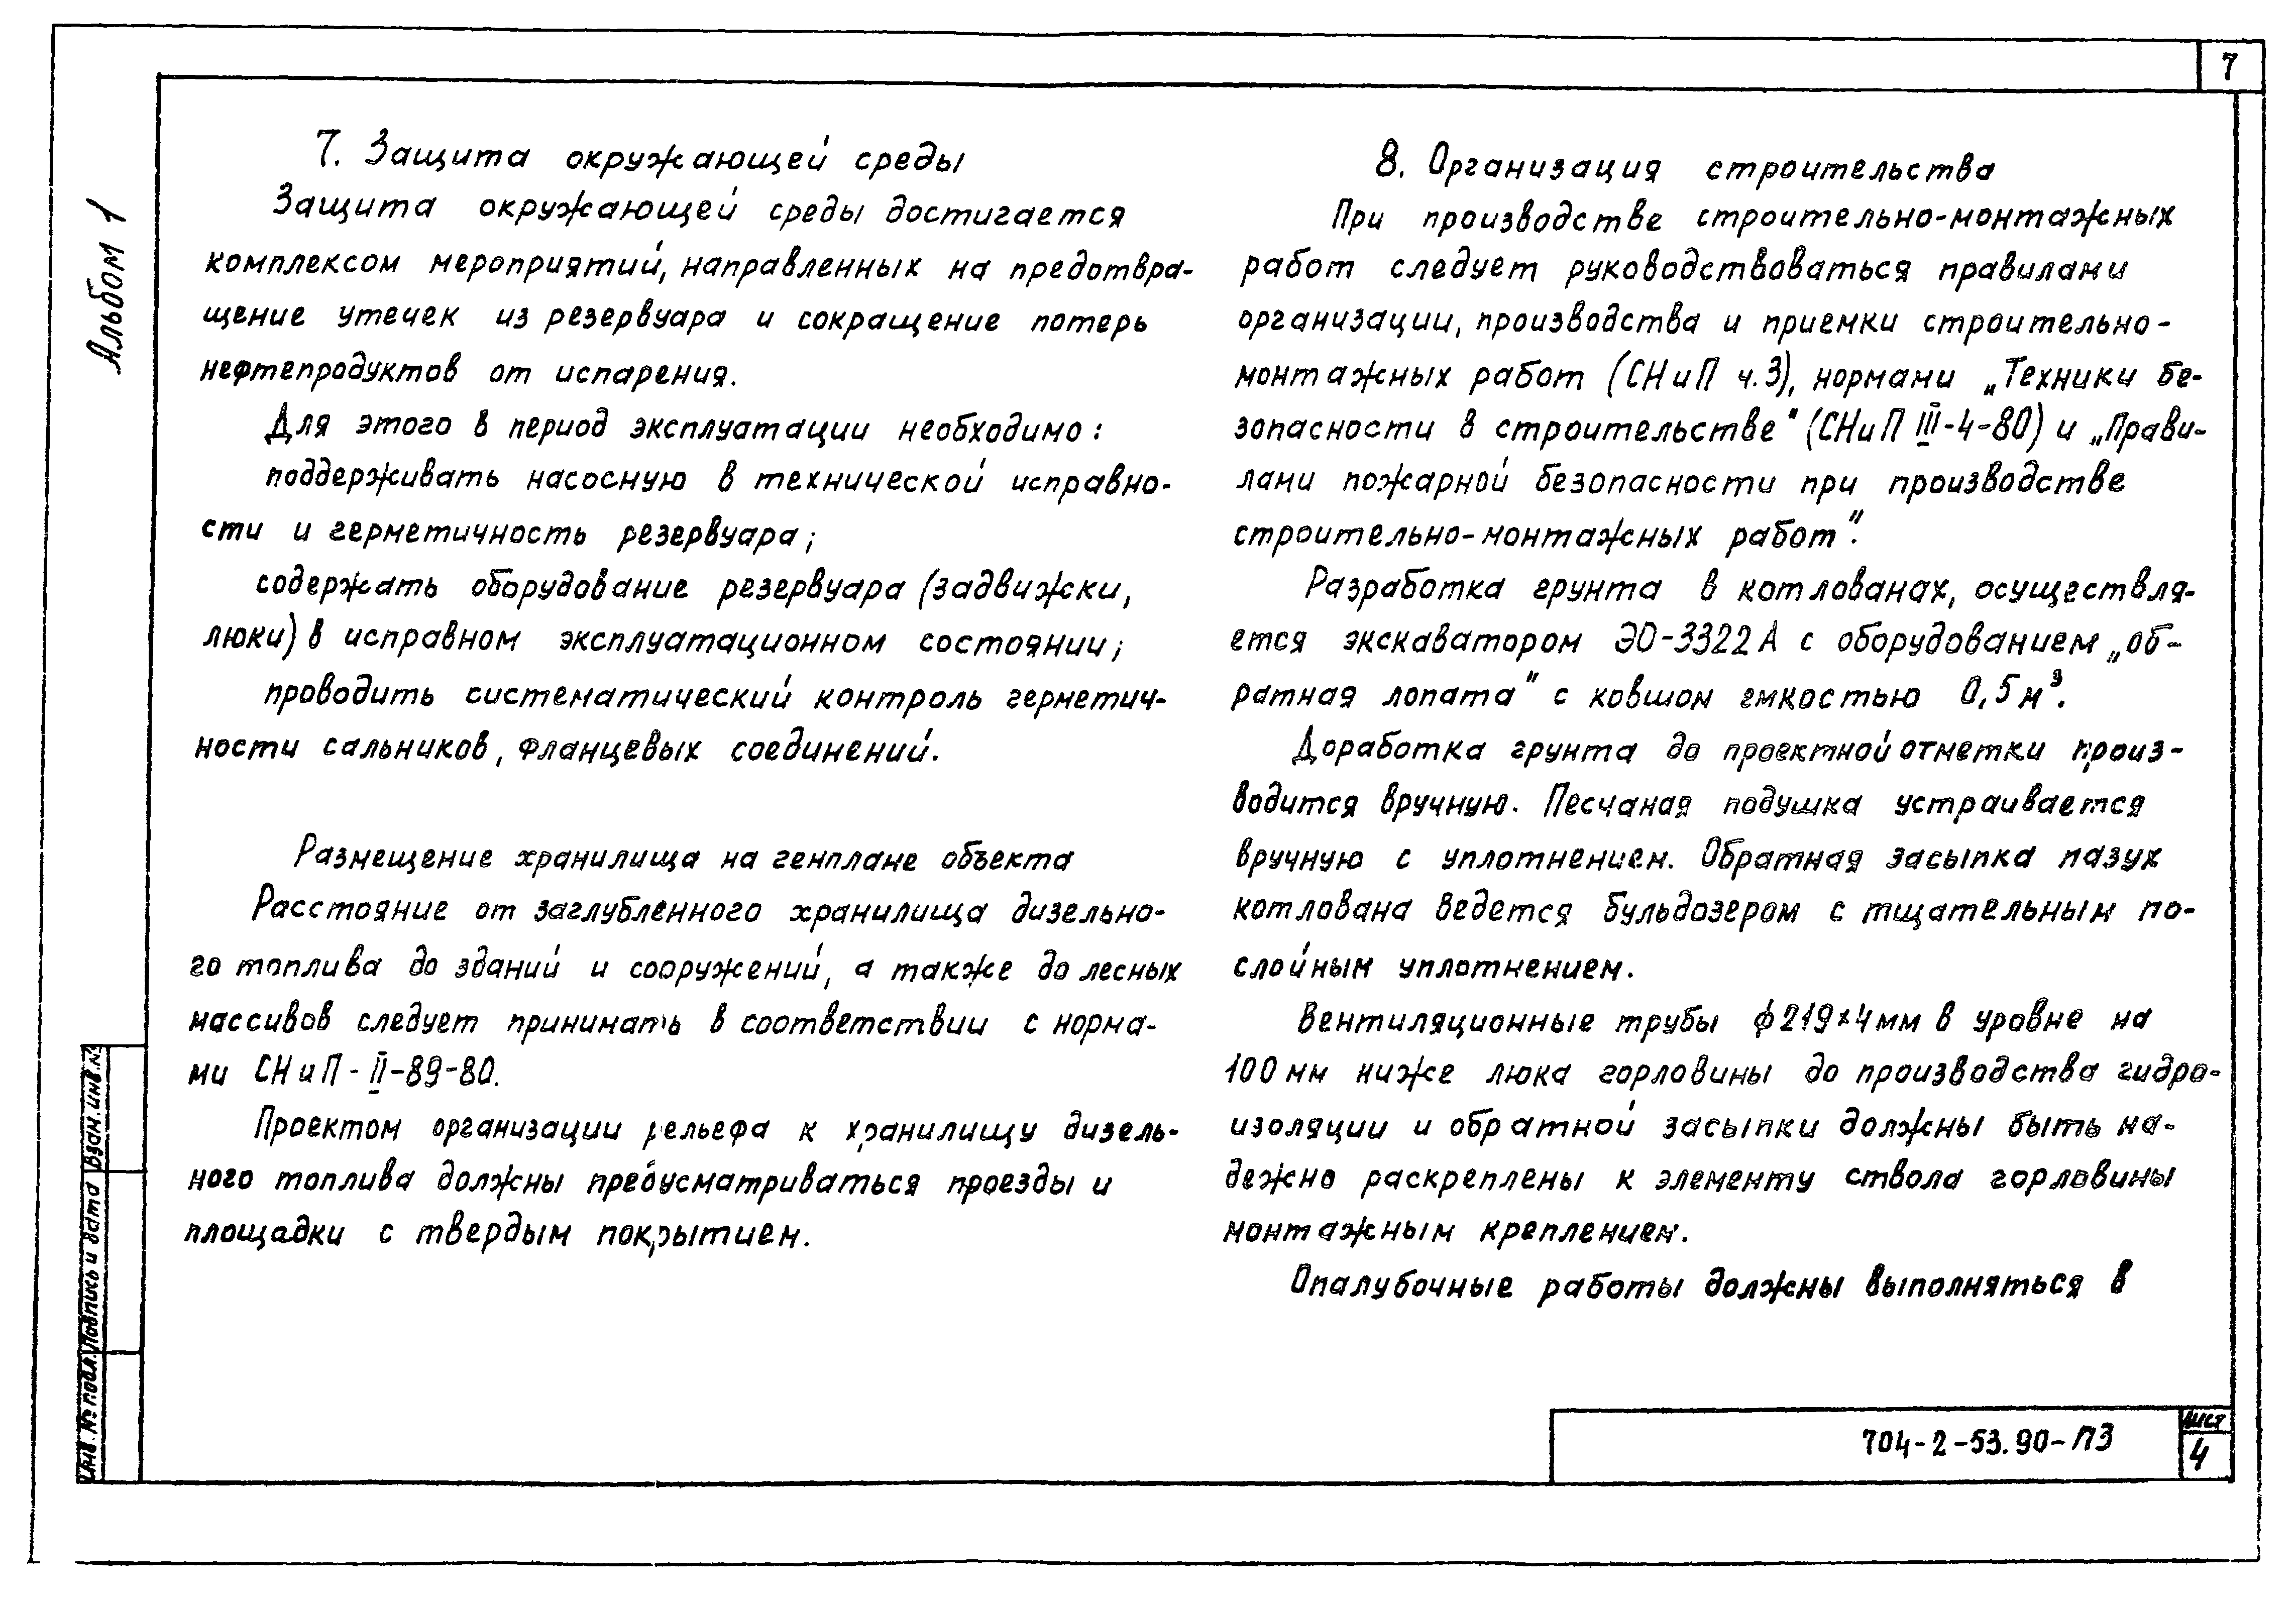 7
Альбом 1
7. Защита окружающей среды
Защита окружающей среды достигается
комплексом мероприятий, направленных на предотвра-
щение утечек из резервуара и сокращение потерь
нефтепродуктов от испарения.
Для этого в период эксплуатации необходимо:
поддерживать насосную в технической исправно-
сти и герметичность резервуара;
содержать оборудование резервуара (задвижки,
люки) в исправном эксплуатационном состоянии;
проводить систематический контроль герметич-
ности сальников, фланцевых соединений.
Размещение хранилища на генплане объекта
Расстояние от заглубленного хранилища дизельно-
го топлива до зданий и сооружений, а также до лесных
массивов следует принимать в соответствии с норма-
ми СНиП-II-89-80.
Проектом организации рельефа к хранилищу дизель-
ного топлива должны предусматриваться проезды и
площадки с твердым покрытием.
8. Организация строительства
При производстве строительно-монтажных
работ следует руководствоваться правилами
организации, производства и приемки строительно-
монтажных работ (СНиП ч.3), нормами „Техники бе-
зопасности в строительстве" (СНиП III-4-80) и „Прави-
лами пожарной безопасности при производстве
строительно-монтажных работ".
Разработка грунта в котлованах, осуществля-
ется экскаватором ЭО-3322А с оборудованием „об-
ратная лопата" с ковшом емкостью 0,5м³.
Доработка грунта до проектной отметки произ-
водится вручную. Песчаная подушка устраивается
вручную с уплотнением. Обратная засыпка пазух
котлована ведется бульдозером с тщательным по-
слойным уплотнением.
Вентиляционные трубы ф219×4мм в уровне на
100мм ниже люка горловины до производства гидро-
изоляции и обратной засыпки должны быть на-
дежно раскреплены к элементу ствола горловины
монтажным креплением.
Опалубочные работы должны выполняться в
Взам.инв.№
Подпись и дата
Инв.№ подл.
704-2-53.90-ПЗ
Лист
4